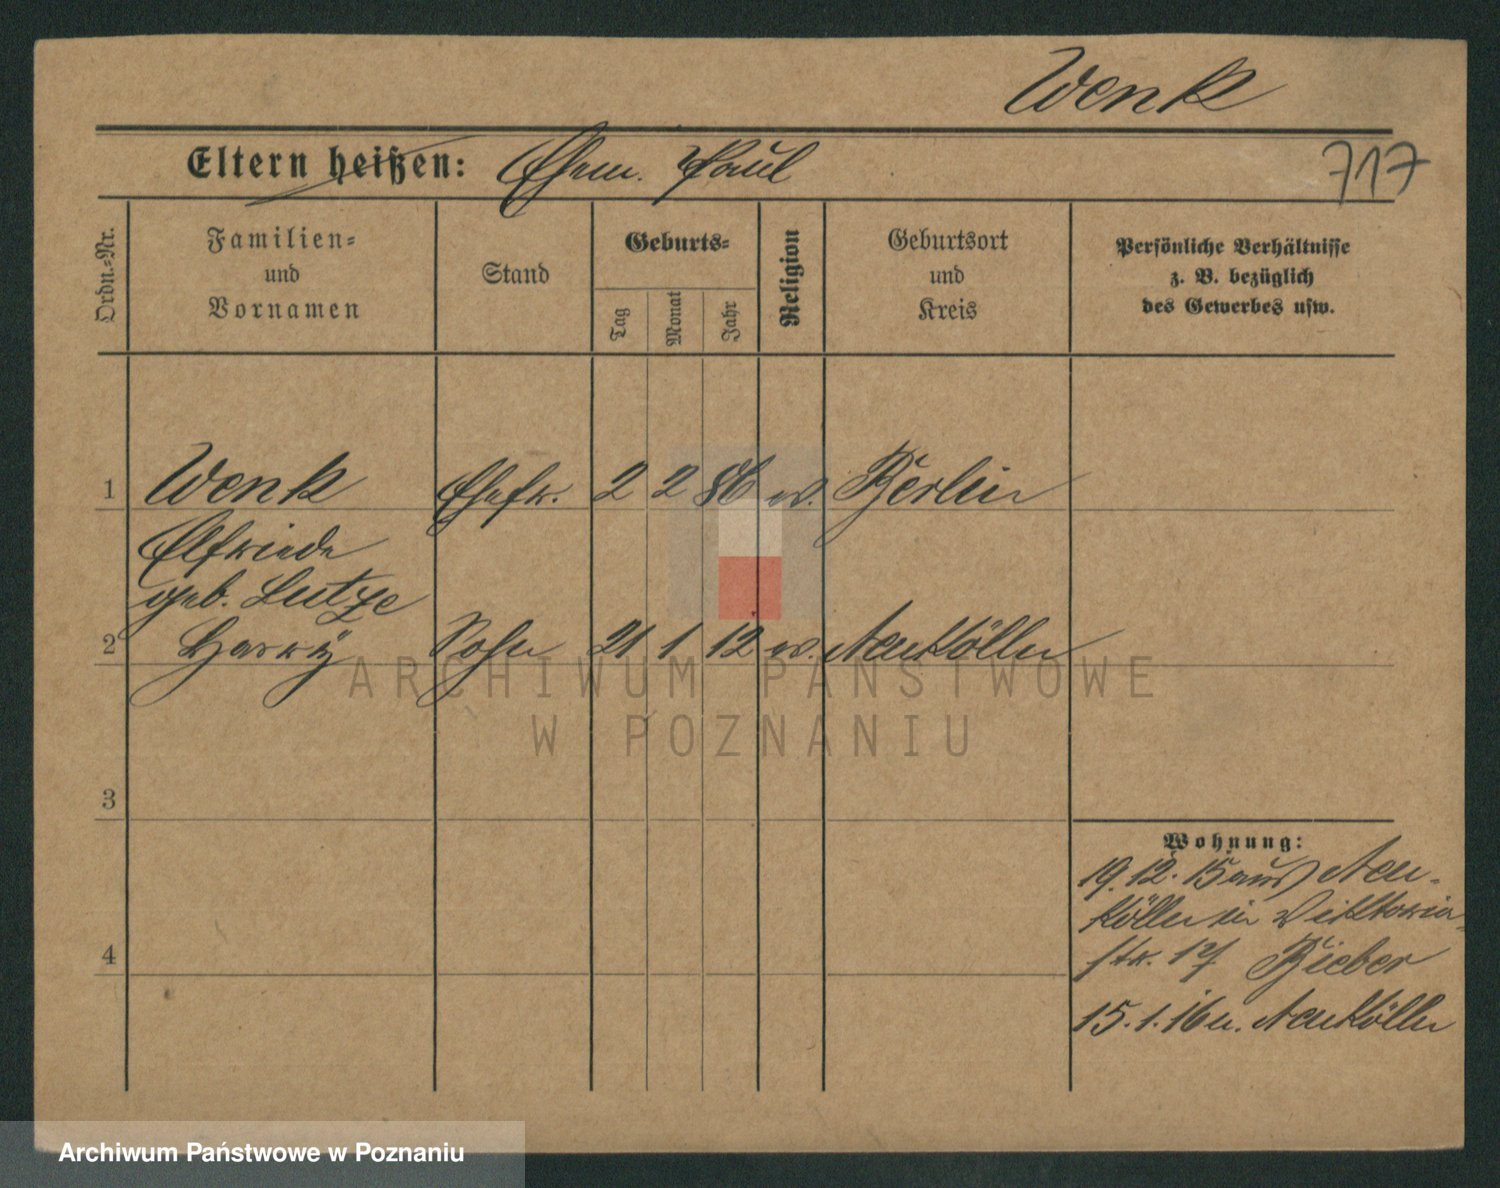 Wenk
Eltern heißen: Ehem. Paul
717
Ordn.=Nr.
Familien=
und
Vornamen
Stand
Geburts=
Tag
Monat
Jahr
Religion
Geburtsort
und
Kreis
Persönliche Verhältnisse
z. B. bezüglich
des Gewerbes usw.
1 Wenk Ehefr. 2 2 86 ev. Berlin
Elfriede
geb. Lutze
2 Harry Sohn 21 1 12 ev. Neukölln
3
4
Wohnung:
19.12.15 aus Neu-
kölln in Viktoria-
str. 17 Bieber
15.1.16 n. Neukölln
ARCHIWUM PAŃSTWOWE
W POZNANIU
Archiwum Państwowe w Poznaniu